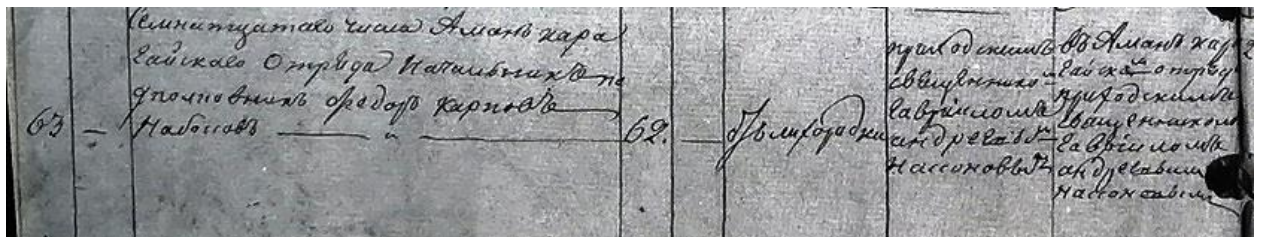 Семнатцатаго числа Аманъ кара
гайскаго Отряда Начальникъ по
дполковникъ Федоръ Карповъ
63 — Набоковъ — „ — 62. —
отъ лихорадки
приходскимъ
священнико
Гавріиломъ
андреевы
Нассоновымъ
въ Аманъ кар
гайск отряд
приходскимъ
священником
Гавріиломъ
андреевым
Нассоновым